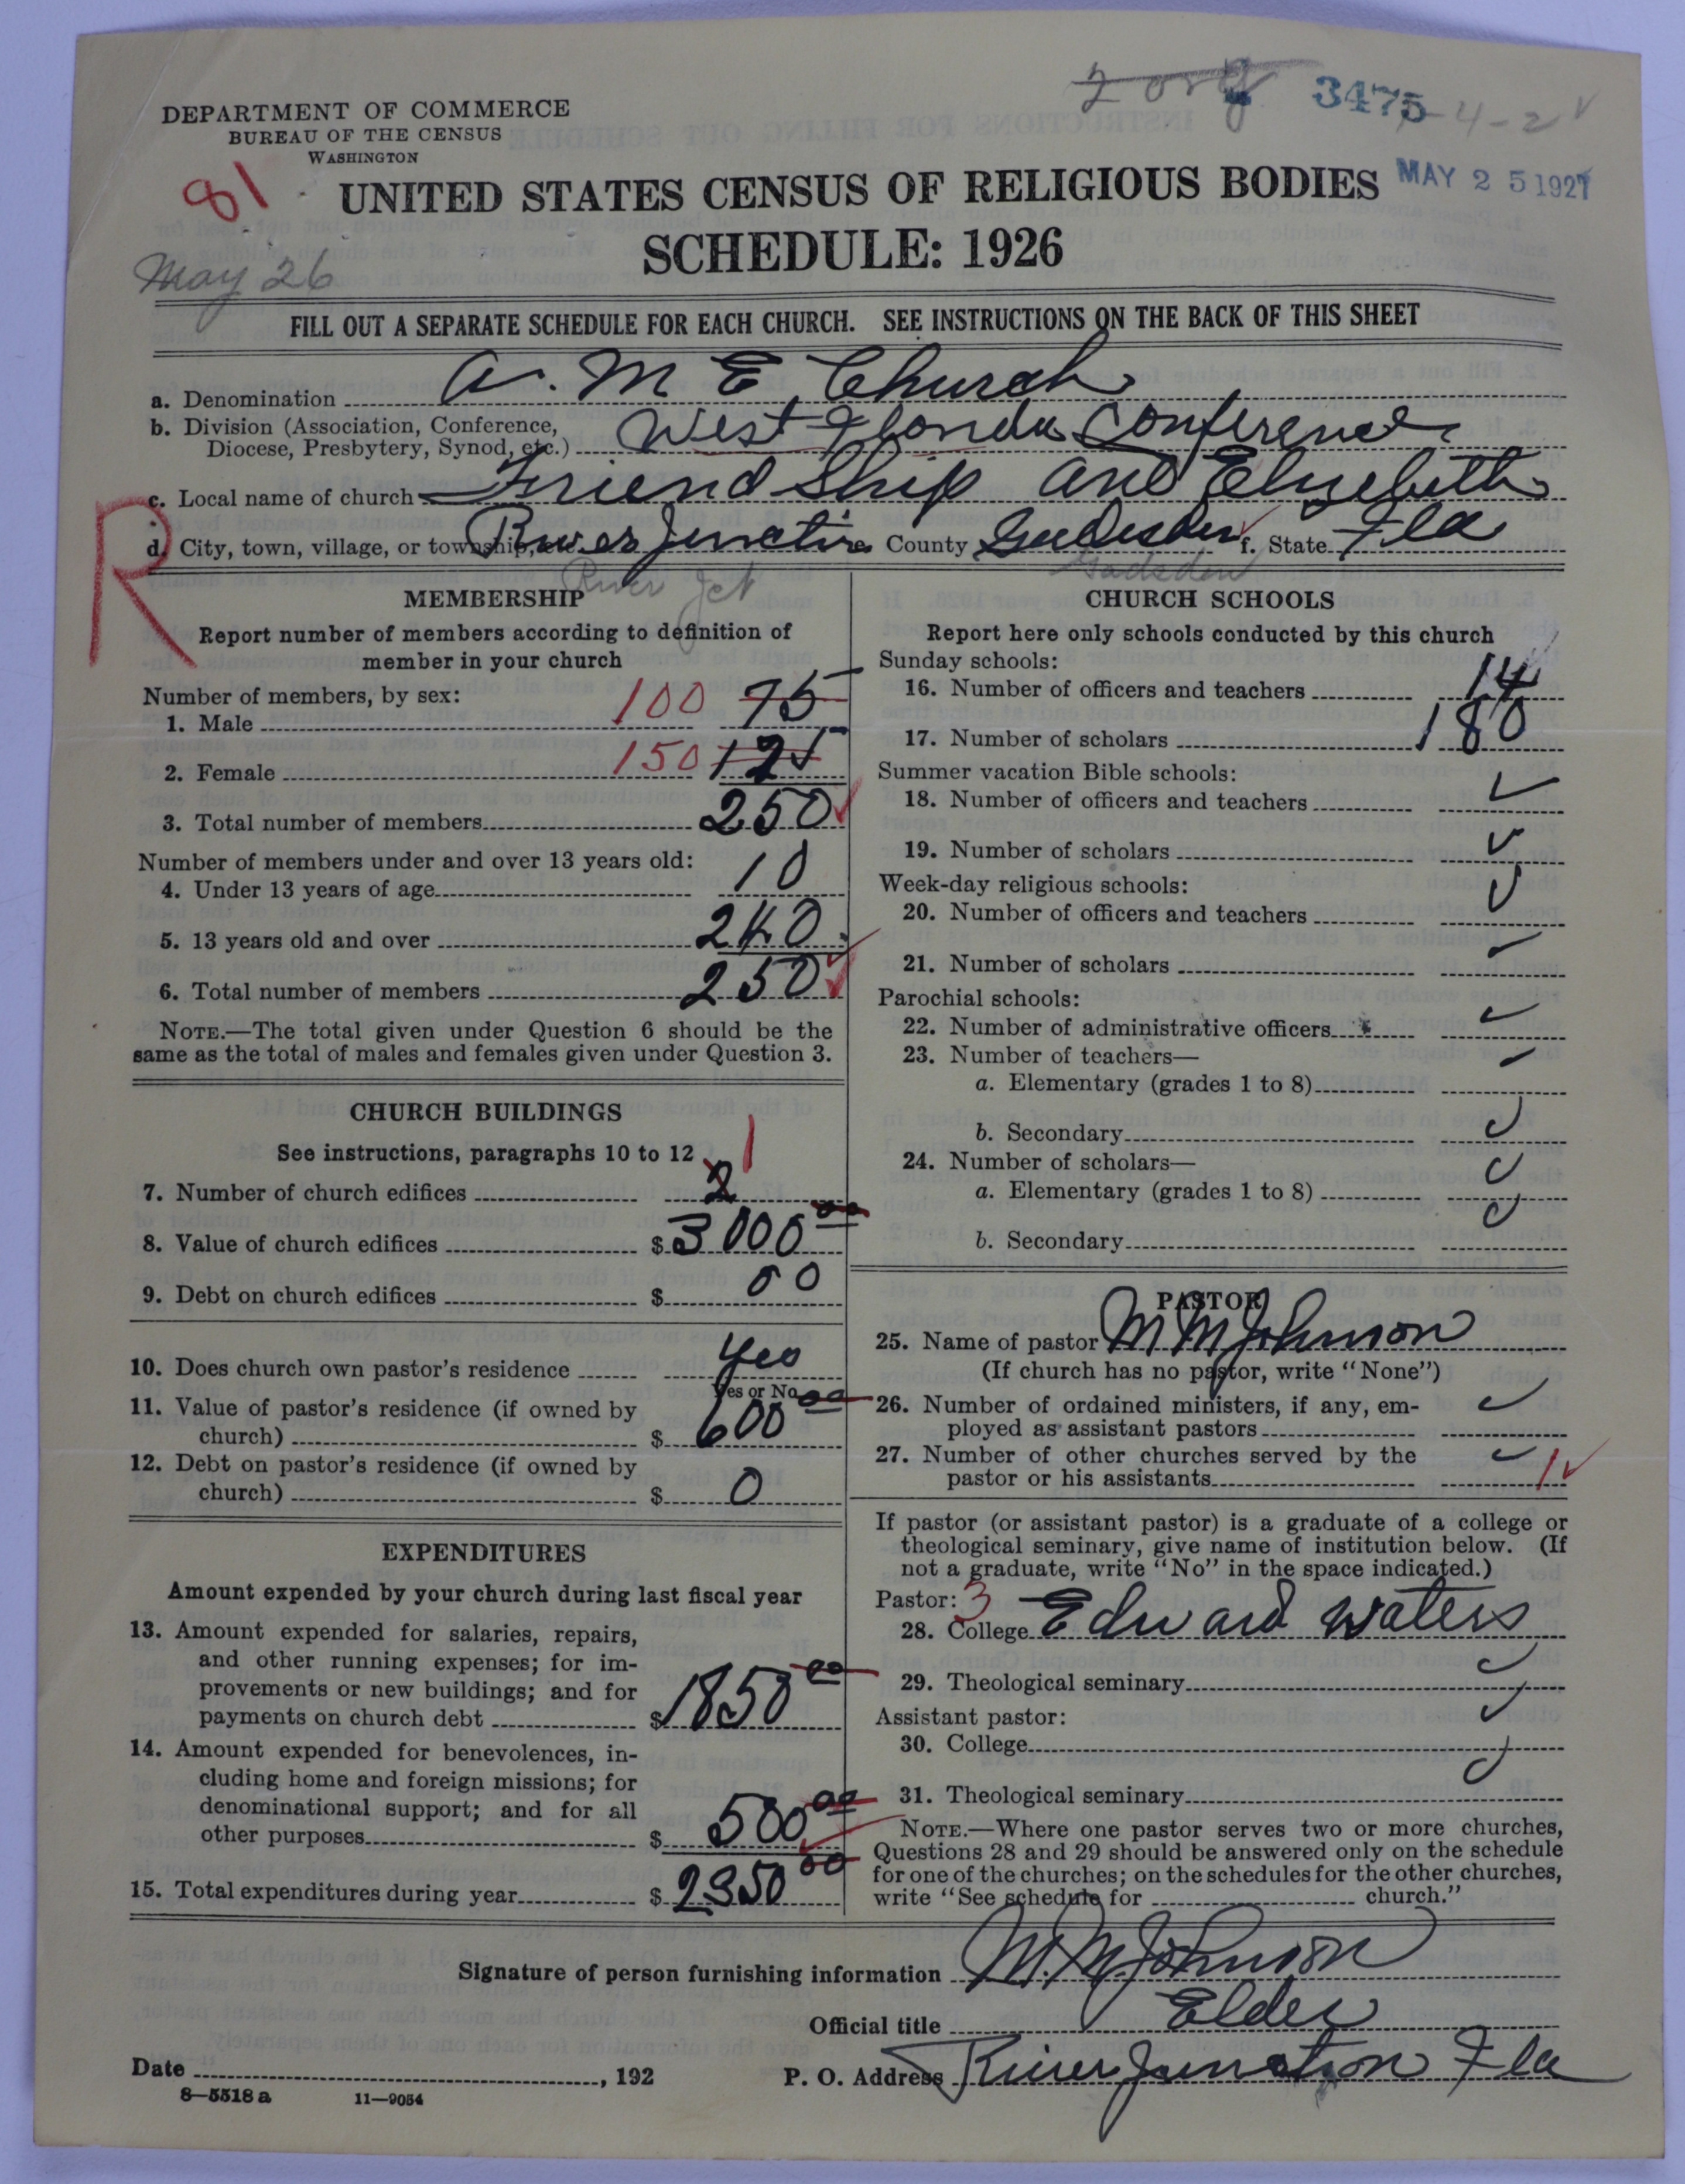 2 org 3475 -4-2
DEPARTMENT OF COMMERCE
BUREAU OF THE CENSUS
WASHINGTON
81
UNITED STATES CENSUS OF RELIGIOUS BODIES
MAY 25 1927
SCHEDULE: 1926
May 26
FILL OUT A SEPARATE SCHEDULE FOR EACH CHURCH. SEE INSTRUCTIONS ON THE BACK OF THIS SHEET
a. Denomination A. M E Church
b. Division (Association, Conference,
Diocese, Presbytery, Synod, etc.) West Florida Conference
c. Local name of church Friend Ship and Elizebeth
R
d. City, town, village, or township, etc. River Junction e. County Gadesden f. State Fla
River Jct Gadsden
MEMBERSHIP
Report number of members according to definition of
member in your church
Number of members, by sex:
1. Male 100 75
2. Female 150 125
3. Total number of members 250
Number of members under and over 13 years old:
4. Under 13 years of age 10
5. 13 years old and over 240
6. Total number of members 250
NOTE.—The total given under Question 6 should be the
same as the total of males and females given under Question 3.
CHURCH BUILDINGS
See instructions, paragraphs 10 to 12
7. Number of church edifices 2 1
8. Value of church edifices $ 3000 00
9. Debt on church edifices $ 00
10. Does church own pastor's residence Yes
Yes or No
11. Value of pastor's residence (if owned by
church) $ 600 00
12. Debt on pastor's residence (if owned by
church) $ 0
EXPENDITURES
Amount expended by your church during last fiscal year
13. Amount expended for salaries, repairs,
and other running expenses; for im-
provements or new buildings; and for
payments on church debt $ 1850 00
14. Amount expended for benevolences, in-
cluding home and foreign missions; for
denominational support; and for all
other purposes $ 500 00
15. Total expenditures during year $ 2350 00
CHURCH SCHOOLS
Report here only schools conducted by this church
Sunday schools:
16. Number of officers and teachers 14
17. Number of scholars 180
Summer vacation Bible schools:
18. Number of officers and teachers
19. Number of scholars
Week-day religious schools:
20. Number of officers and teachers
21. Number of scholars
Parochial schools:
22. Number of administrative officers
23. Number of teachers—
a. Elementary (grades 1 to 8)
b. Secondary
24. Number of scholars—
a. Elementary (grades 1 to 8)
b. Secondary
PASTOR
25. Name of pastor M M Johnson
(If church has no pastor, write "None")
26. Number of ordained ministers, if any, em-
ployed as assistant pastors
27. Number of other churches served by the
pastor or his assistants 1
If pastor (or assistant pastor) is a graduate of a college or
theological seminary, give name of institution below. (If
not a graduate, write "No" in the space indicated.)
Pastor: 3
28. College Edward Waters
29. Theological seminary
Assistant pastor:
30. College
31. Theological seminary
NOTE.—Where one pastor serves two or more churches,
Questions 28 and 29 should be answered only on the schedule
for one of the churches; on the schedules for the other churches,
write "See schedule for church."
Signature of person furnishing information M. M. Johnson
Official title Elder
Date , 192 P. O. Address River Junction Fla
8—5518 a 11—9054